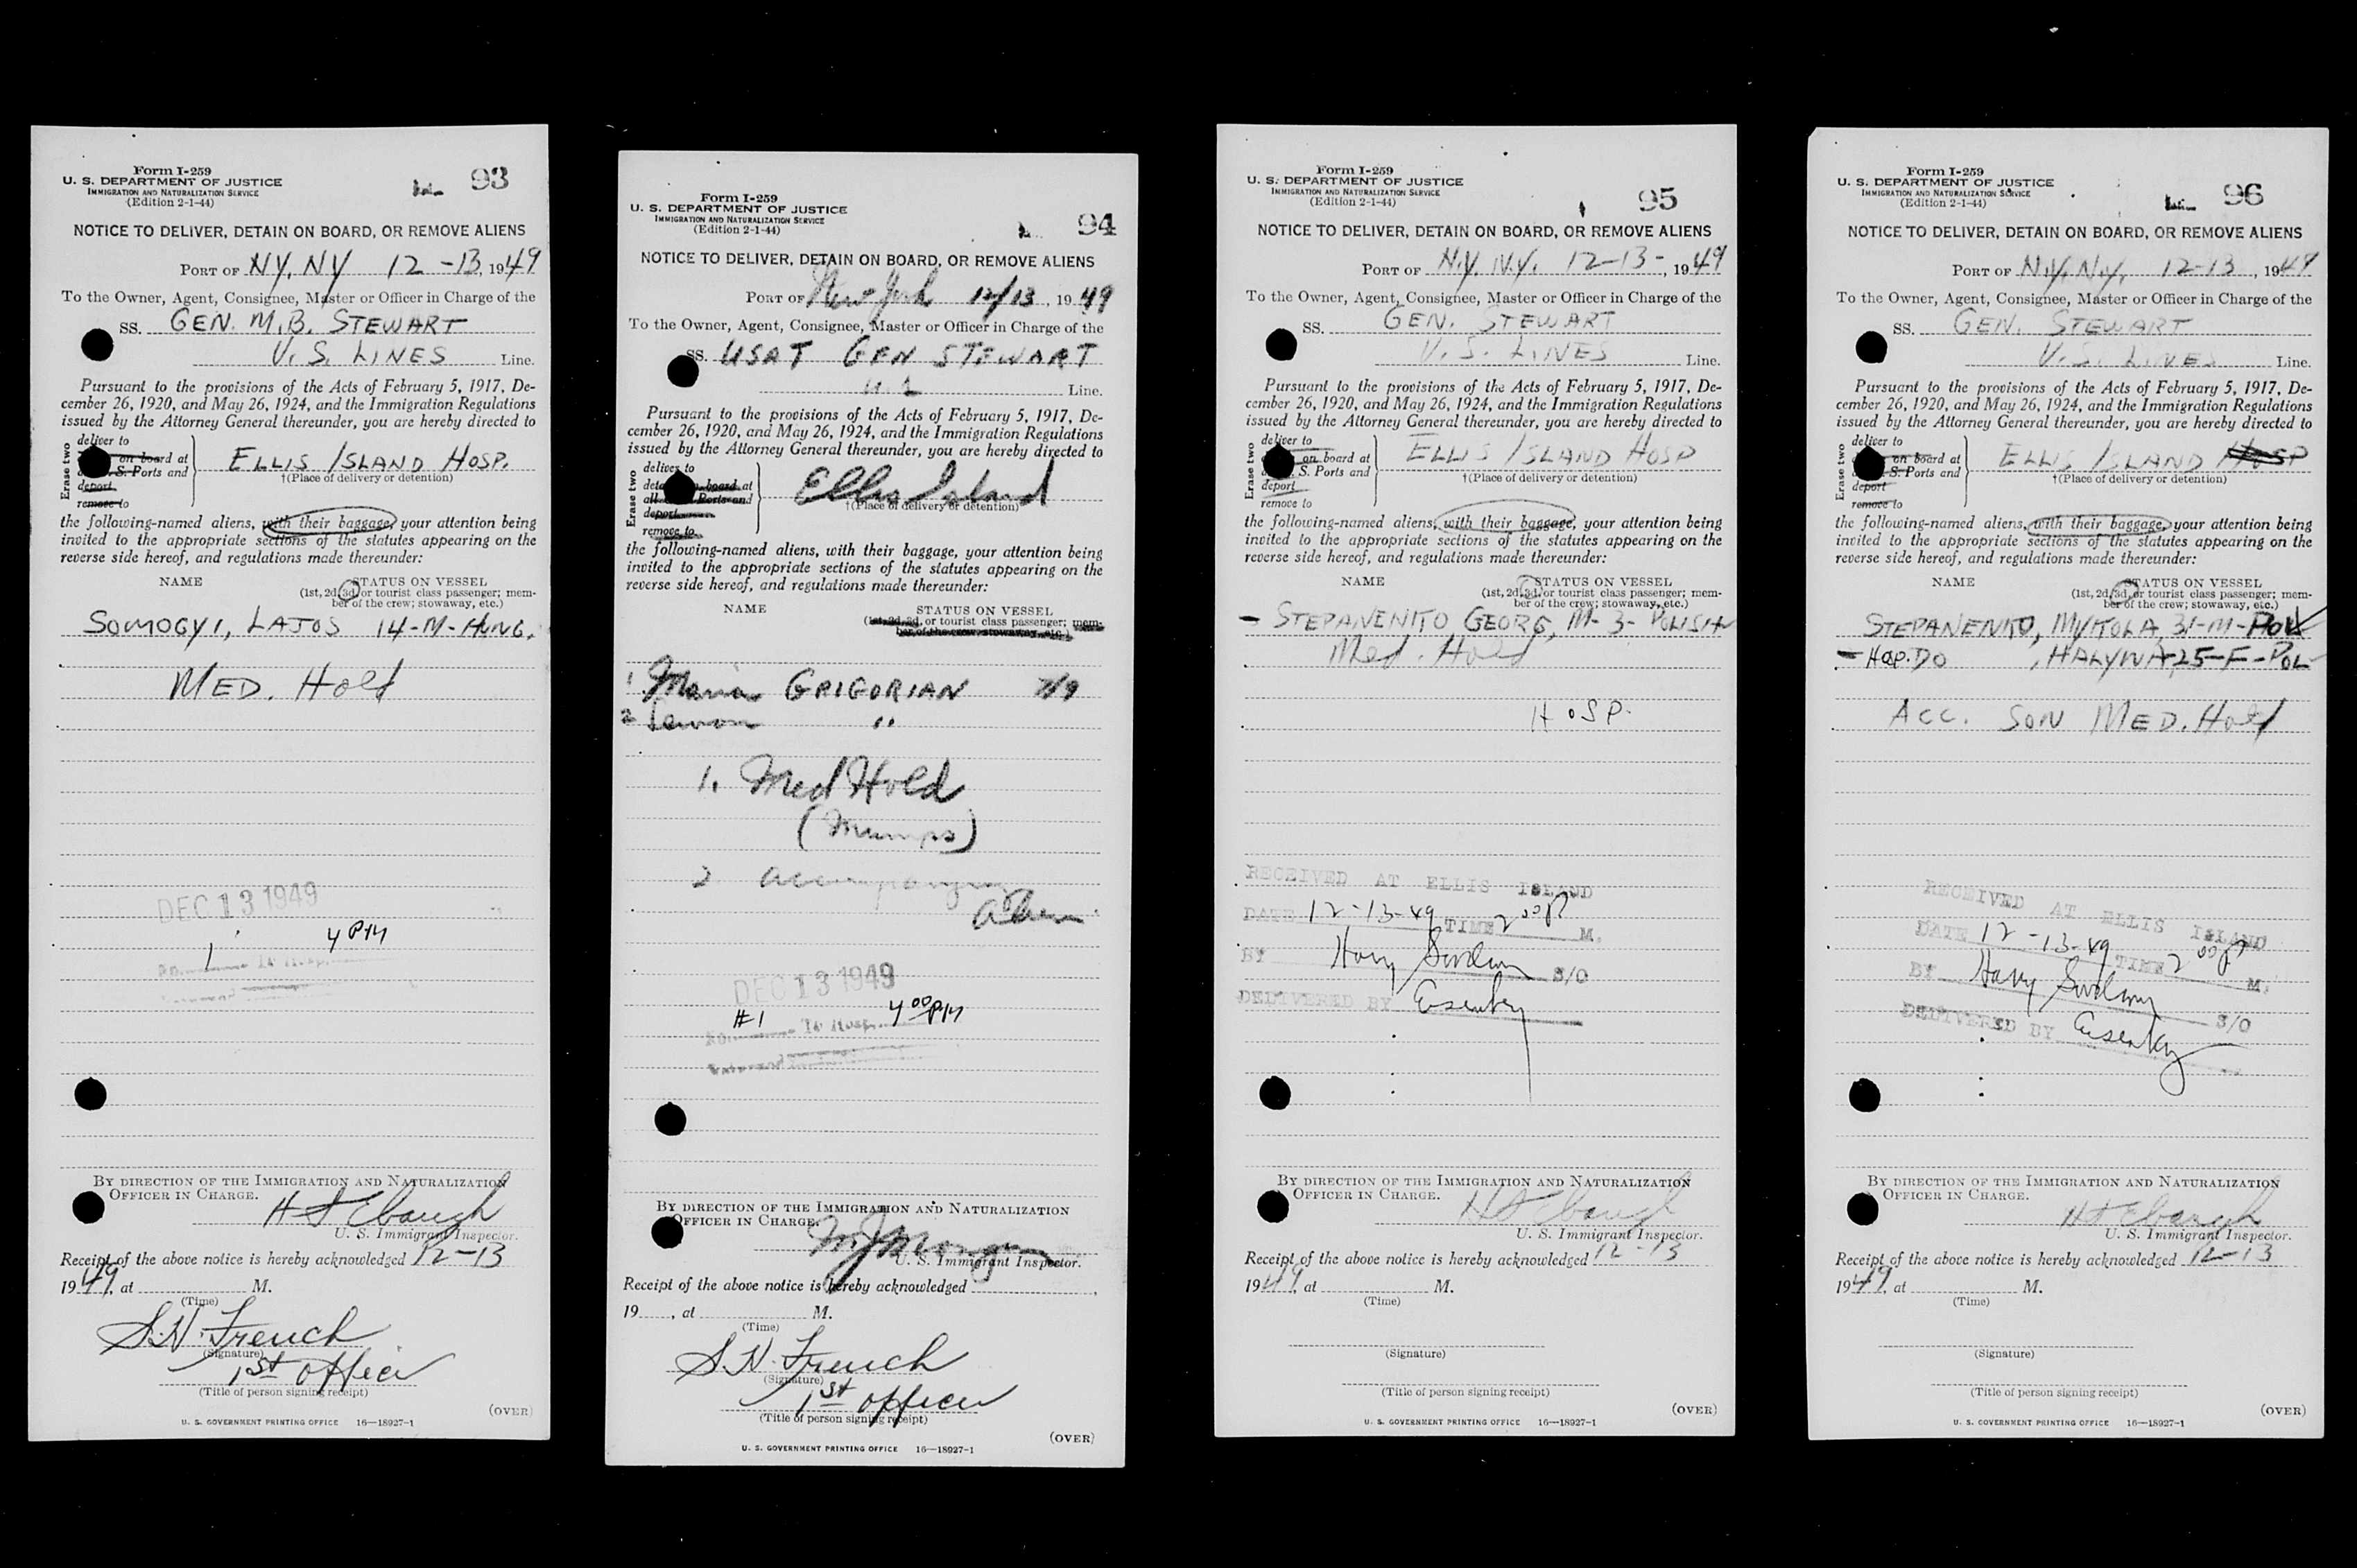 Form I-259
U. S. DEPARTMENT OF JUSTICE
IMMIGRATION AND NATURALIZATION SERVICE
(Edition 2-1-44)
93
NOTICE TO DELIVER, DETAIN ON BOARD, OR REMOVE ALIENS
PORT OF NY, NY 12-13, 1949
To the Owner, Agent, Consignee, Master or Officer in Charge of the
SS. GEN. M.B. STEWART
U.S. LINES Line.
Pursuant to the provisions of the Acts of February 5, 1917, De-
cember 26, 1920, and May 26, 1924, and the Immigration Regulations
issued by the Attorney General thereunder, you are hereby directed to
Erase two
deliver to
on board at
S. Ports and
deport
remove to
ELLIS ISLAND HOSP.
†(Place of delivery or detention)
the following-named aliens, with their baggage, your attention being
invited to the appropriate sections of the statutes appearing on the
reverse side hereof, and regulations made thereunder:
NAME STATUS ON VESSEL
(1st, 2d, 3d, or tourist class passenger; mem-
ber of the crew; stowaway, etc.)
SOMOGYI, LAJOS 14-M-HUNG.
MED. Hold
DEC 13 1949
1 4 PM
No. To Hosp.
BY DIRECTION OF THE IMMIGRATION AND NATURALIZATION
OFFICER IN CHARGE.
H Ebaugh
U. S. Immigrant Inspector.
Receipt of the above notice is hereby acknowledged 12-13
1949, at M.
(Time)
S.N. French
(Signature)
1st officer
(Title of person signing receipt)
(OVER)
U. S. GOVERNMENT PRINTING OFFICE 16—18927-1
Form I-259
U. S. DEPARTMENT OF JUSTICE
IMMIGRATION AND NATURALIZATION SERVICE
(Edition 2-1-44)
94
NOTICE TO DELIVER, DETAIN ON BOARD, OR REMOVE ALIENS
PORT OF New York 12/13, 1949
To the Owner, Agent, Consignee, Master or Officer in Charge of the
SS. USAT GEN STEWART
Line.
Pursuant to the provisions of the Acts of February 5, 1917, De-
cember 26, 1920, and May 26, 1924, and the Immigration Regulations
issued by the Attorney General thereunder, you are hereby directed to
Erase two
deliver to
board at
all Ports and
deport
remove to
Ellis Island
†(Place of delivery or detention)
the following-named aliens, with their baggage, your attention being
invited to the appropriate sections of the statutes appearing on the
reverse side hereof, and regulations made thereunder:
NAME STATUS ON VESSEL
(1st, 2d, 3d, or tourist class passenger; mem-
ber of the crew; stowaway, etc.)
1 Maria GRIGORIAN
2 "
1. Med Hold
(Mumps)
2 accompanying
alien
DEC 13 1949
#1 4 00 PM
No. To Hosp.
BY DIRECTION OF THE IMMIGRATION AND NATURALIZATION
OFFICER IN CHARGE.
U. S. Immigrant Inspector.
Receipt of the above notice is hereby acknowledged ,
19 , at M.
(Time)
S.N. French
(Signature)
1st officer
(Title of person signing receipt)
(OVER)
U. S. GOVERNMENT PRINTING OFFICE 16—18927-1
Form I-259
U. S. DEPARTMENT OF JUSTICE
IMMIGRATION AND NATURALIZATION SERVICE
(Edition 2-1-44)
95
NOTICE TO DELIVER, DETAIN ON BOARD, OR REMOVE ALIENS
PORT OF N.Y. N.Y. 12-13-, 1949
To the Owner, Agent, Consignee, Master or Officer in Charge of the
SS. GEN. STEWART
U.S. LINES Line.
Pursuant to the provisions of the Acts of February 5, 1917, De-
cember 26, 1920, and May 26, 1924, and the Immigration Regulations
issued by the Attorney General thereunder, you are hereby directed to
Erase two
deliver to
on board at
S. Ports and
deport
remove to
ELLIS ISLAND HOSP
†(Place of delivery or detention)
the following-named aliens, with their baggage, your attention being
invited to the appropriate sections of the statutes appearing on the
reverse side hereof, and regulations made thereunder:
NAME STATUS ON VESSEL
(1st, 2d, 3d, or tourist class passenger; mem-
ber of the crew; stowaway, etc.)
- STEPANENKO GEORG, M-3-POLISH
Med. Hold
HOSP.
RECEIVED AT ELLIS ISLAND
DATE 12-13-49 TIME 2 00 P M.
BY Harry S/O
DELIVERED BY
BY DIRECTION OF THE IMMIGRATION AND NATURALIZATION
OFFICER IN CHARGE.
H Ebaugh
U. S. Immigrant Inspector.
Receipt of the above notice is hereby acknowledged 12-13
1949, at M.
(Time)
(Signature)
(Title of person signing receipt)
(OVER)
U. S. GOVERNMENT PRINTING OFFICE 16—18927-1
Form I-259
U. S. DEPARTMENT OF JUSTICE
IMMIGRATION AND NATURALIZATION SERVICE
(Edition 2-1-44)
96
NOTICE TO DELIVER, DETAIN ON BOARD, OR REMOVE ALIENS
PORT OF N.Y. N.Y. 12-13, 1949
To the Owner, Agent, Consignee, Master or Officer in Charge of the
SS. GEN. STEWART
U.S. LINES Line.
Pursuant to the provisions of the Acts of February 5, 1917, De-
cember 26, 1920, and May 26, 1924, and the Immigration Regulations
issued by the Attorney General thereunder, you are hereby directed to
Erase two
deliver to
on board at
S. Ports and
deport
remove to
ELLIS ISLAND HOSP
†(Place of delivery or detention)
the following-named aliens, with their baggage, your attention being
invited to the appropriate sections of the statutes appearing on the
reverse side hereof, and regulations made thereunder:
NAME STATUS ON VESSEL
(1st, 2d, 3d, or tourist class passenger; mem-
ber of the crew; stowaway, etc.)
STEPANENKO, MYKOLA, 31-M-POL
- DO , HALYNA-25-F-POL
ACC. SON MED. Hold
RECEIVED AT ELLIS ISLAND
DATE 12-13-49 TIME 2 00 P M.
BY Harry S/O
DELIVERED BY
BY DIRECTION OF THE IMMIGRATION AND NATURALIZATION
OFFICER IN CHARGE.
H Ebaugh
U. S. Immigrant Inspector.
Receipt of the above notice is hereby acknowledged 12-13
1949, at M.
(Time)
(Signature)
(Title of person signing receipt)
(OVER)
U. S. GOVERNMENT PRINTING OFFICE 16—18927-1